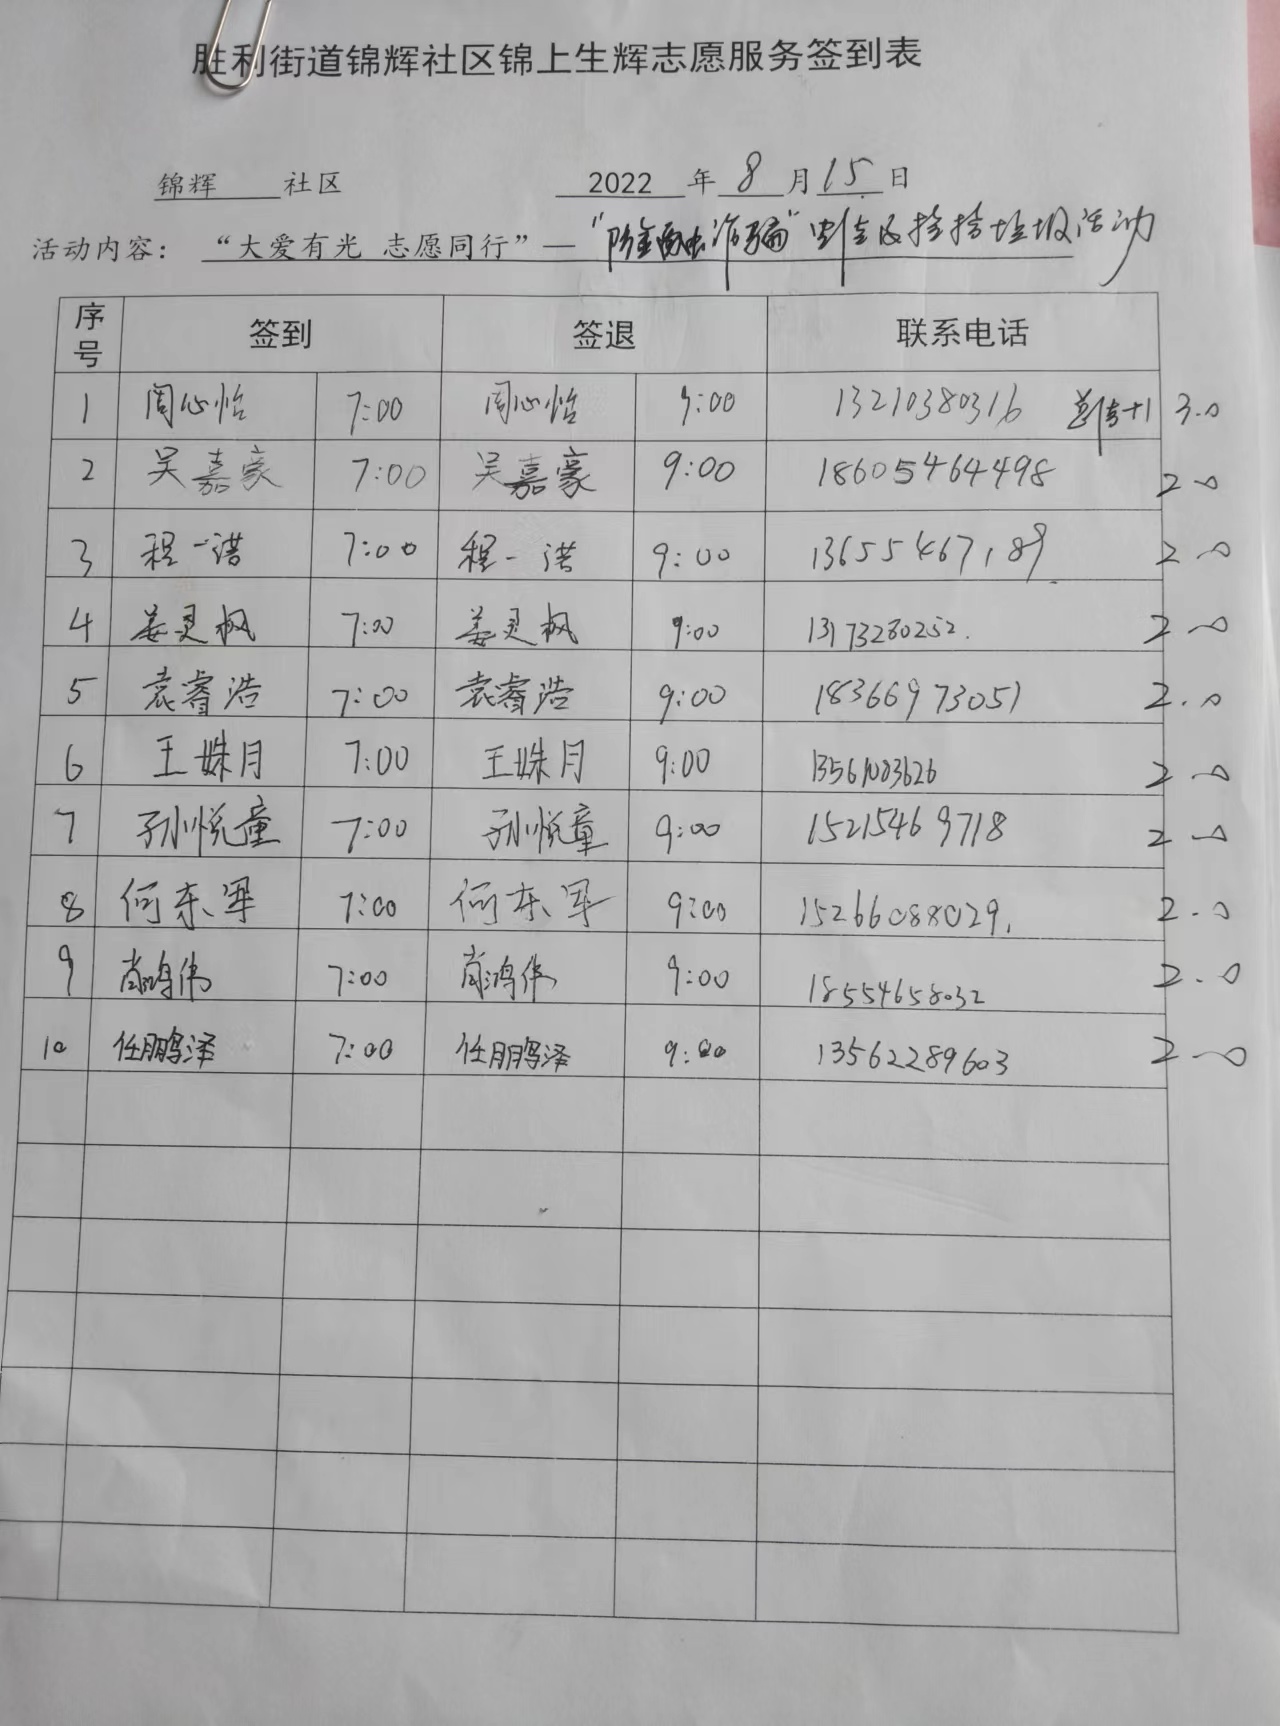 胜利街道锦辉社区锦上生辉志愿服务签到表
锦辉 社区 2022 年 8 月 15 日
活动内容：“大爱有光 志愿同行”—“防金融诈骗” 捡拾垃圾活动
序号 签到 签退 联系电话
1 周心怡 7:00 周心怡 9:00 13210380316 +1 3.0
2 吴嘉豪 7:00 吴嘉豪 9:00 18605464498 2.0
3 程一诺 7:00 程一诺 9:00 13655467189 2.0
4 姜灵枫 7:00 姜灵枫 9:00 13173280252. 2.0
5 袁睿浩 7:00 袁睿浩 9:00 18366973051 2.0
6 王姝月 7:00 王姝月 9:00 13561083626 2.0
7 孙悦童 7:00 孙悦童 9:00 15215469718 2.0
8 何东军 7:00 何东军 9:00 15266088029. 2.0
9 肖鸿伟 7:00 肖鸿伟 9:00 18554658032 2.0
10 任鹏泽 7:00 任鹏泽 9:00 13562289603 2.0